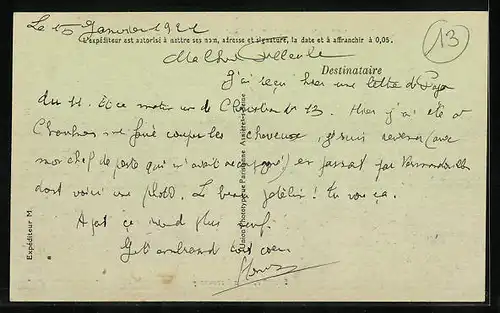 Le 15 Janvier 1921
L'expéditeur est autorisé à mettre ses nom, adresse et signature, la date et à affranchir à 0,05.
13
Ma chère
Destinataire
J'ai reçu hier une lettre de Papa
du 11. Et ce matin une de 13. Hier j'ai été à
me faire couper les cheveux, je suis revenu (avec
mon chef de poste qui m'avait accompagné) en passant par
dont voici une photo. Le beau patelin! tu vois ça.
A part ça rien de plus neuf.
Je t'embrasse
Union Phototypique Parisienne Asnières-Seine
Expéditeur M